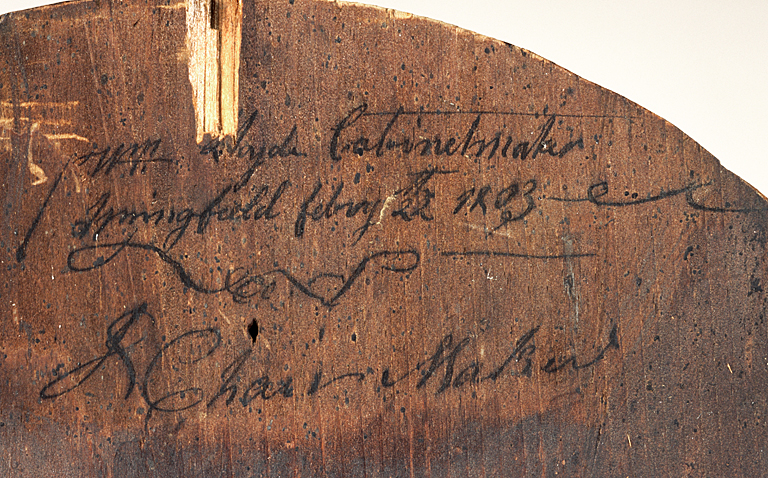 Wm Lloyde Cabinetmaker
Springfield febry 22 1803
& Chair Maker